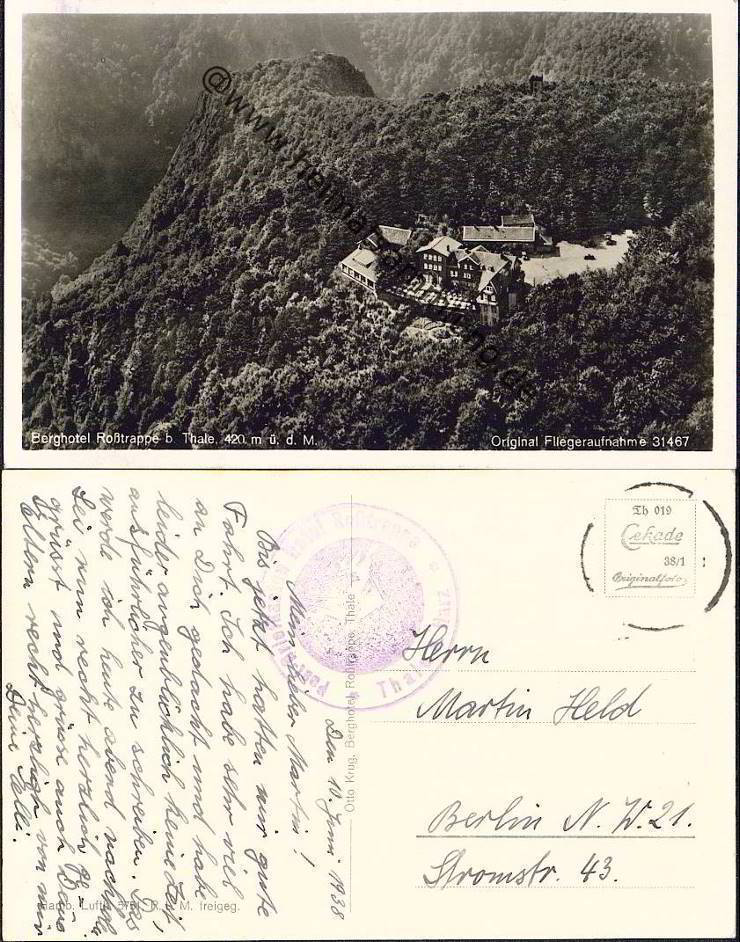 @www.hennad
no.de
Berghotel Roßtrappe b. Thale. 420 m ü. d. M.
Original Fliegeraufnahme 31467
Th 019
Cekade
38/1
Originalfoto
Den 10. Juni 1938
Mein lieber Martin!
Bis jetzt hatten wir gute
Fahrt. Ich habe sehr viel
an Dich gedacht und habe
leider augenblicklich keine Zeit,
ausführlicher zu schreiben. Das
werde ich heute abend nachholen.
Sei nun recht herzlich
grüsst und grüsse auch Deine
Eltern recht herzlich von mir
Deine
Otto Krug, Berghotel Roßtrappe Thale
Roßtrappe
Thale
Herrn
Martin Held
Berlin N.W.21.
Stromstr. 43.
Hamb. Luftb. R. L. M. freigeg.